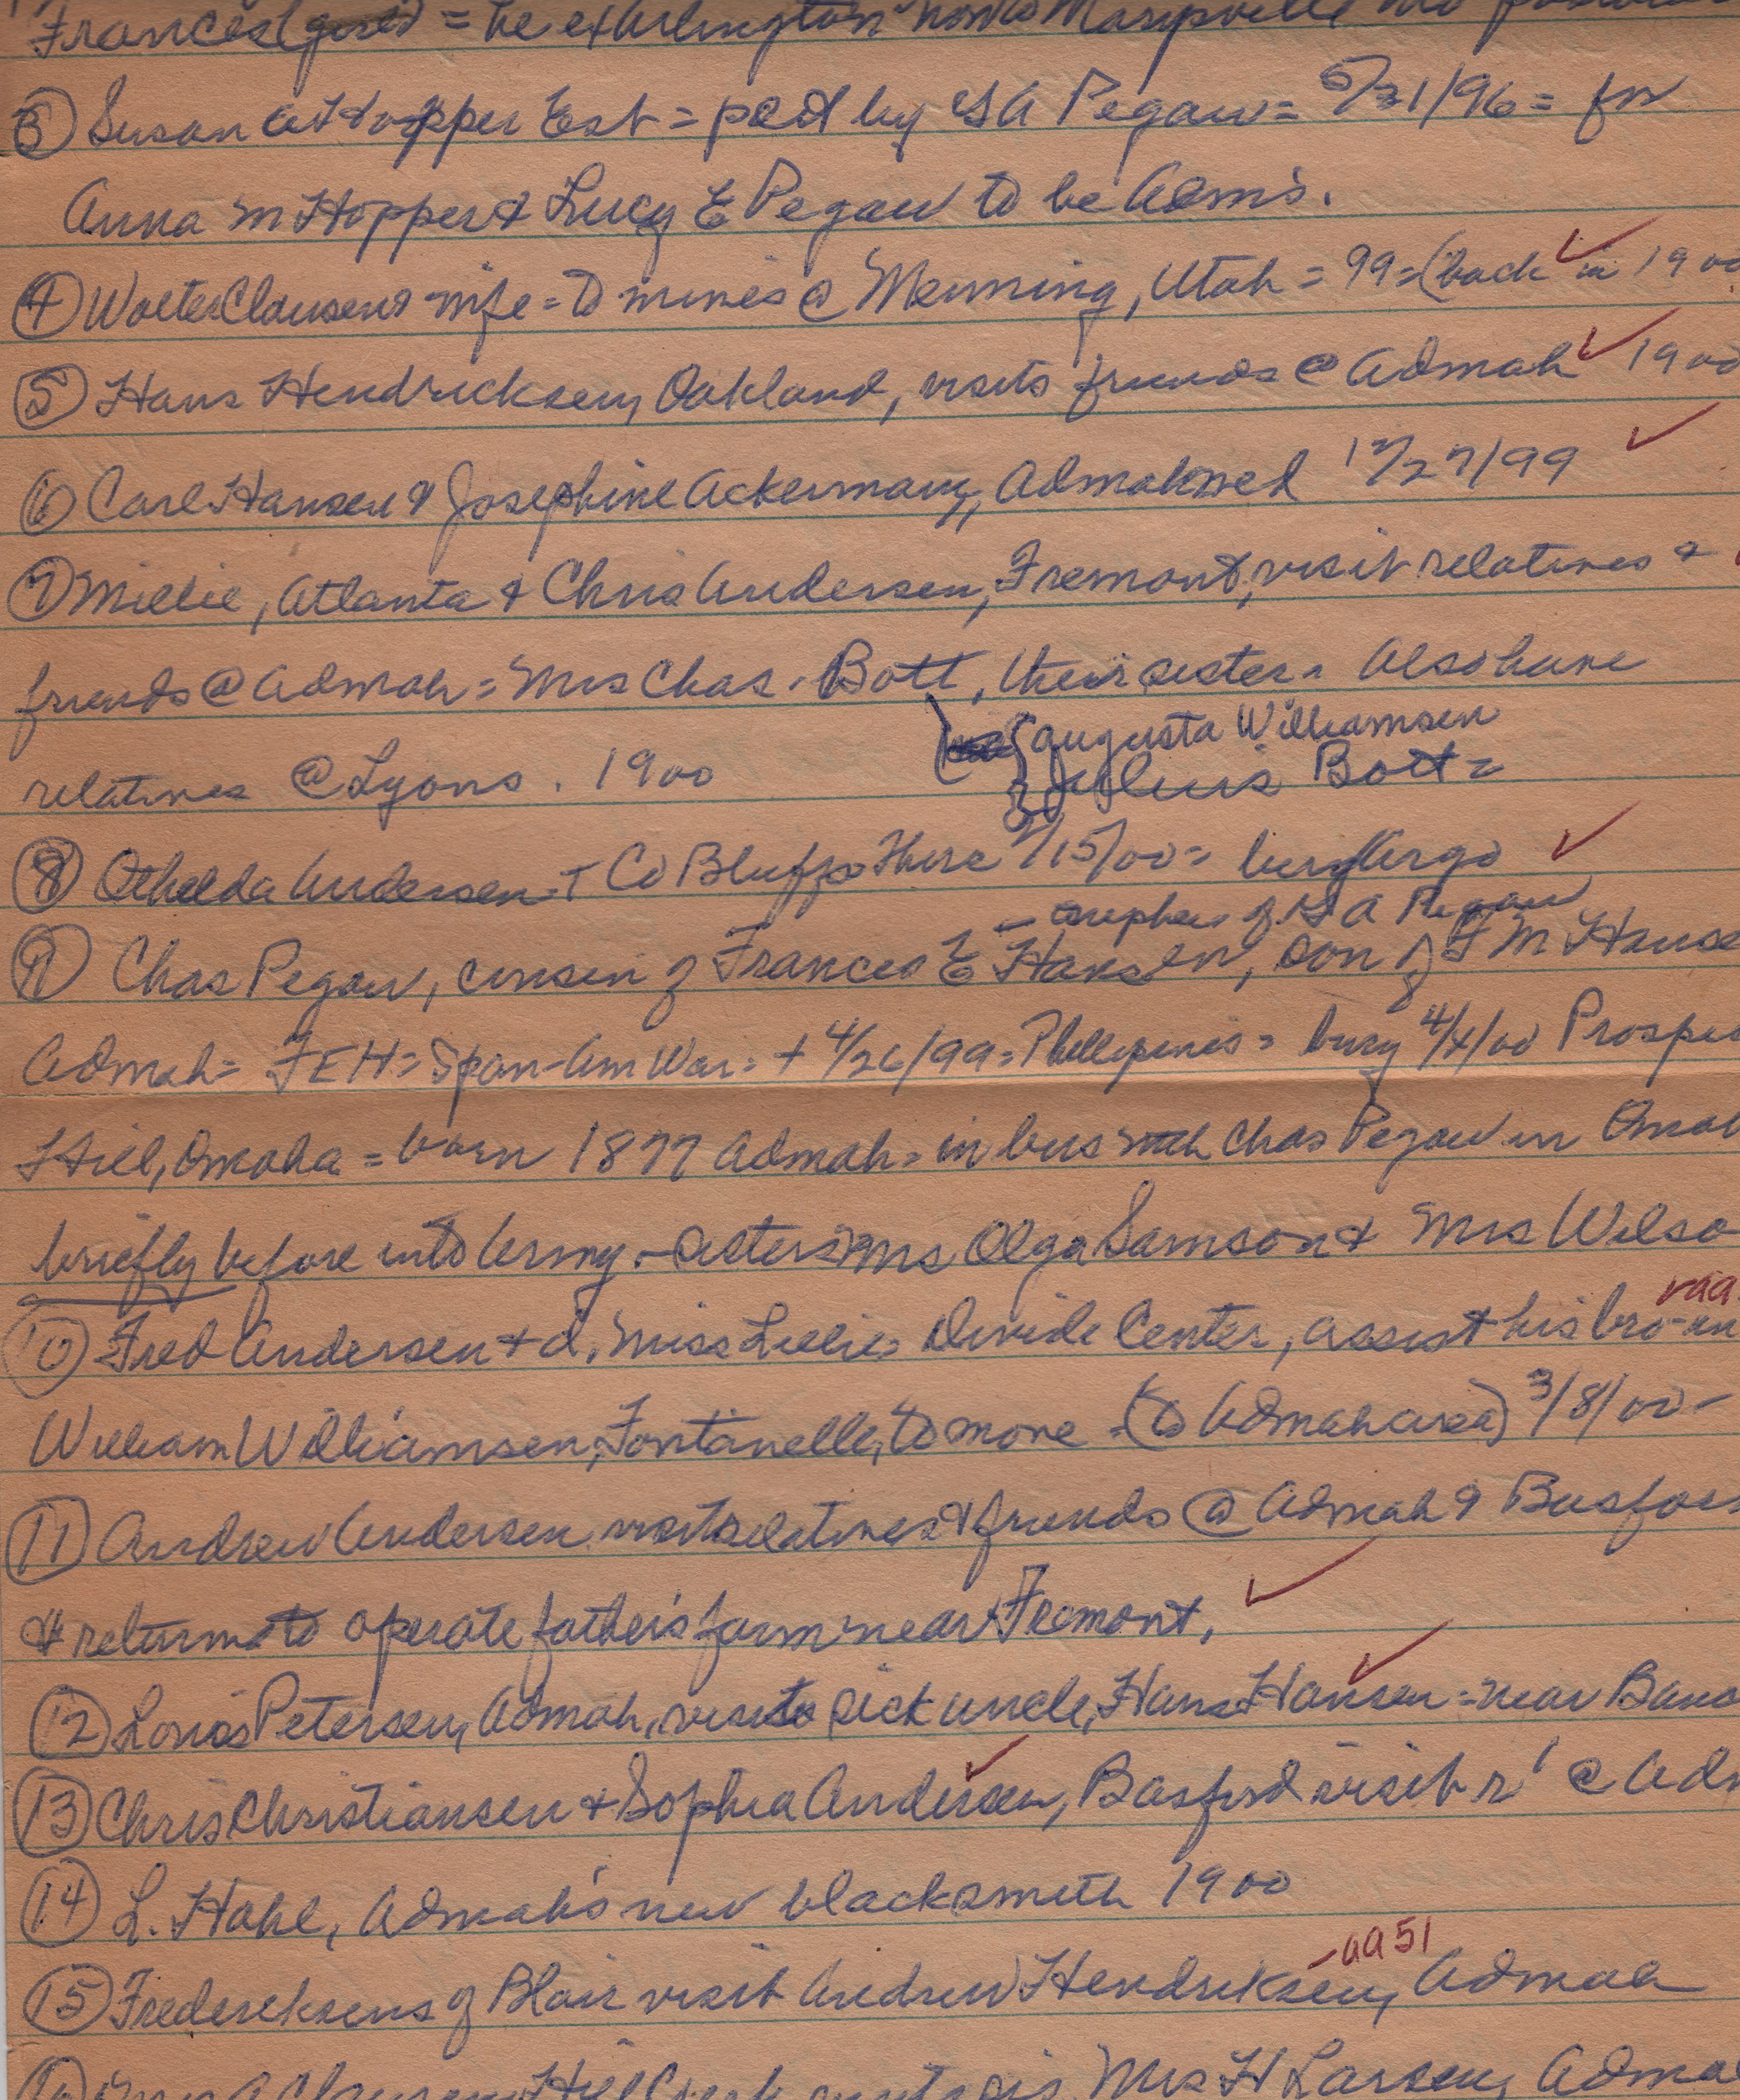 Frances (gived) = he ex Arlington now to Marysville Mo
③ Susan A Hopper Est = ped by G A Pegau = 5/21/96 = for
Anna M Hopper & Lucy E Pegau to be Adm's.
④ Walter Clausen & wife = to mines @ Menning, Utah = 99 = (back in 1900
⑤ Hans Hendricksen, Oakland, visits friends @ Admah 1900
⑥ Carl Hansen & Josephine Ackermann, Admah wed 12/27/99
⑦ Millie, Atlanta & Chris Andersen, Fremont, visit relatives &
friends @ Admah = Mrs Chas. Bott, their sister. Also have
relatives @ Lyons. 1900
{ Augusta Williamsen
{ Julius Bott =
⑧ Othelda Andersen + Co Bluffs There 2/15/00 = bury Argo
- nephew of G A Pegau
⑨ Chas Pegau, cousin of Frances E Hansen, son of F M Hanse
Admah = FEH = Span-Am War = + 4/26/99 = Phillipines = bury 4/4/00 Prospec
Hill, Omaha = born 1877 Admah = in bus with Chas Pegau in Omah
briefly before into Army. - sisters Mrs Olga Samson & Mrs Wilso
raa
⑩ Fred Andersen & d, Miss Lillie, Divide Center, assist his bro-in
William Williamsen, Fontanelle, to move - (to Admah area) 3/8/00 -
⑪ Andrew Andersen visits relatives & friends @ Admah & Basfor
& return to operate father's farm near Fremont,
⑫ Louis Petersen, Admah, visits sick uncle, Hans Hansen = near Banc
⑬ Chris Christiansen & Sophia Andersen, Basford visit r' @ Adm
⑭ L. Hahl, Admah's new blacksmith 1900
-aa51
⑮ Fredericksens of Blair visit Andrew Hendricksen, Admah
Mrs H Larsen, Adma